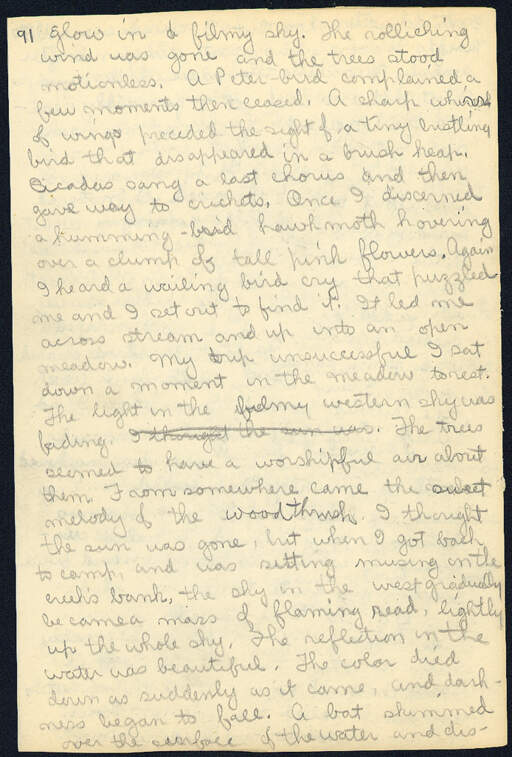 91 glow in a filmy sky. The rolliching
wind was gone and the trees stood
motionless. A Peter-bird complained a
few moments then ceased. A sharp
of wings preceded the sight of a tiny bustling
bird that disappeared in a brush heap.
Cicadas sang a last chorus and then
gave way to crickets. Once I discerned
a humming-bird hawkmoth hovering
over a clump of tall pink flowers. Again
I heard a wailing bird cry that puzzled
me and I set out to find it. It led me
across stream and up into an open
meadow. My trip unsuccessful I sat
down a moment in the meadow to rest.
The light in the western sky was
fading. I thought the sun was. The trees
seemed to have a worshipful air about
them. From somewhere came the sweet
melody of the woodthrush. I thought
the sun was gone, but when I got back
to camp, and was sitting musing on the
creek's bank, the sky in the west gradually
became a mass of flaming read, lightly
up the whole sky. The reflection in the
water was beautiful. The color died
down as suddenly as it came, and dark-
ness began to fall. A bat skimmed
over the surface of the water and dis-